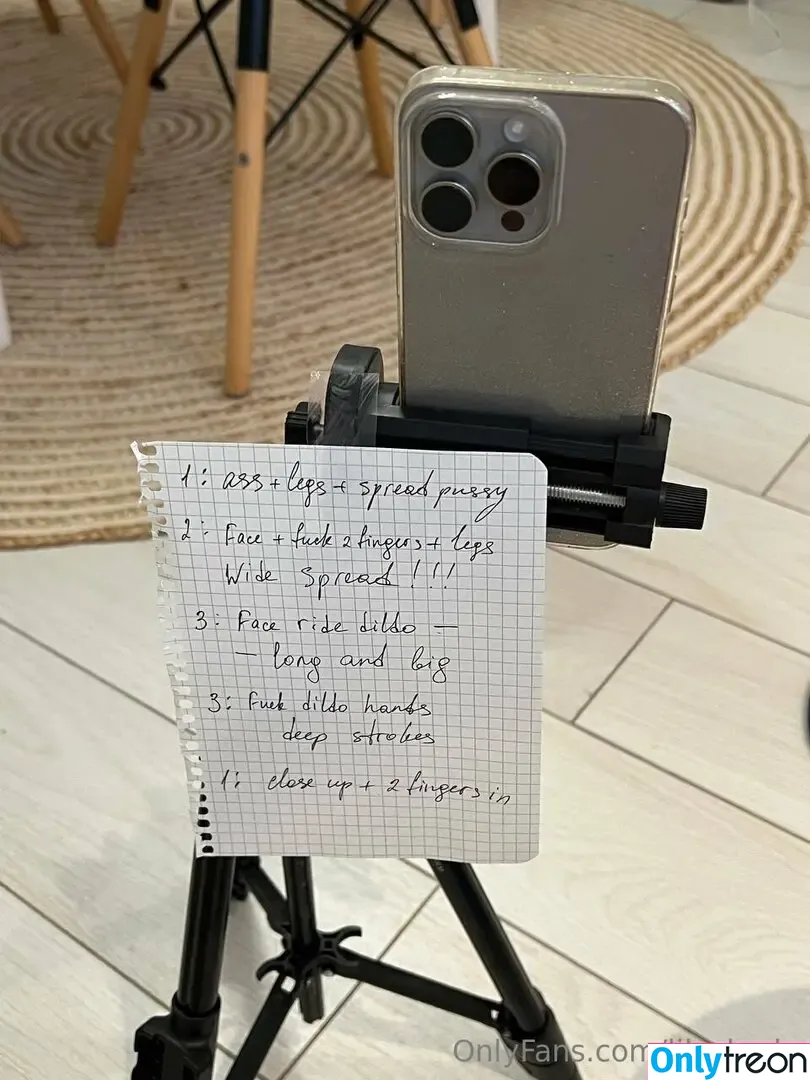 1: ass + legs + spread pussy
2: Face + fuck 2 fingers + legs
Wide spread!!!
3: Face ride dildo —
— long and big
3: Fuck dildo hands
deep strokes
1: close up + 2 fingers in
OnlyFans.com/
Onlytreon